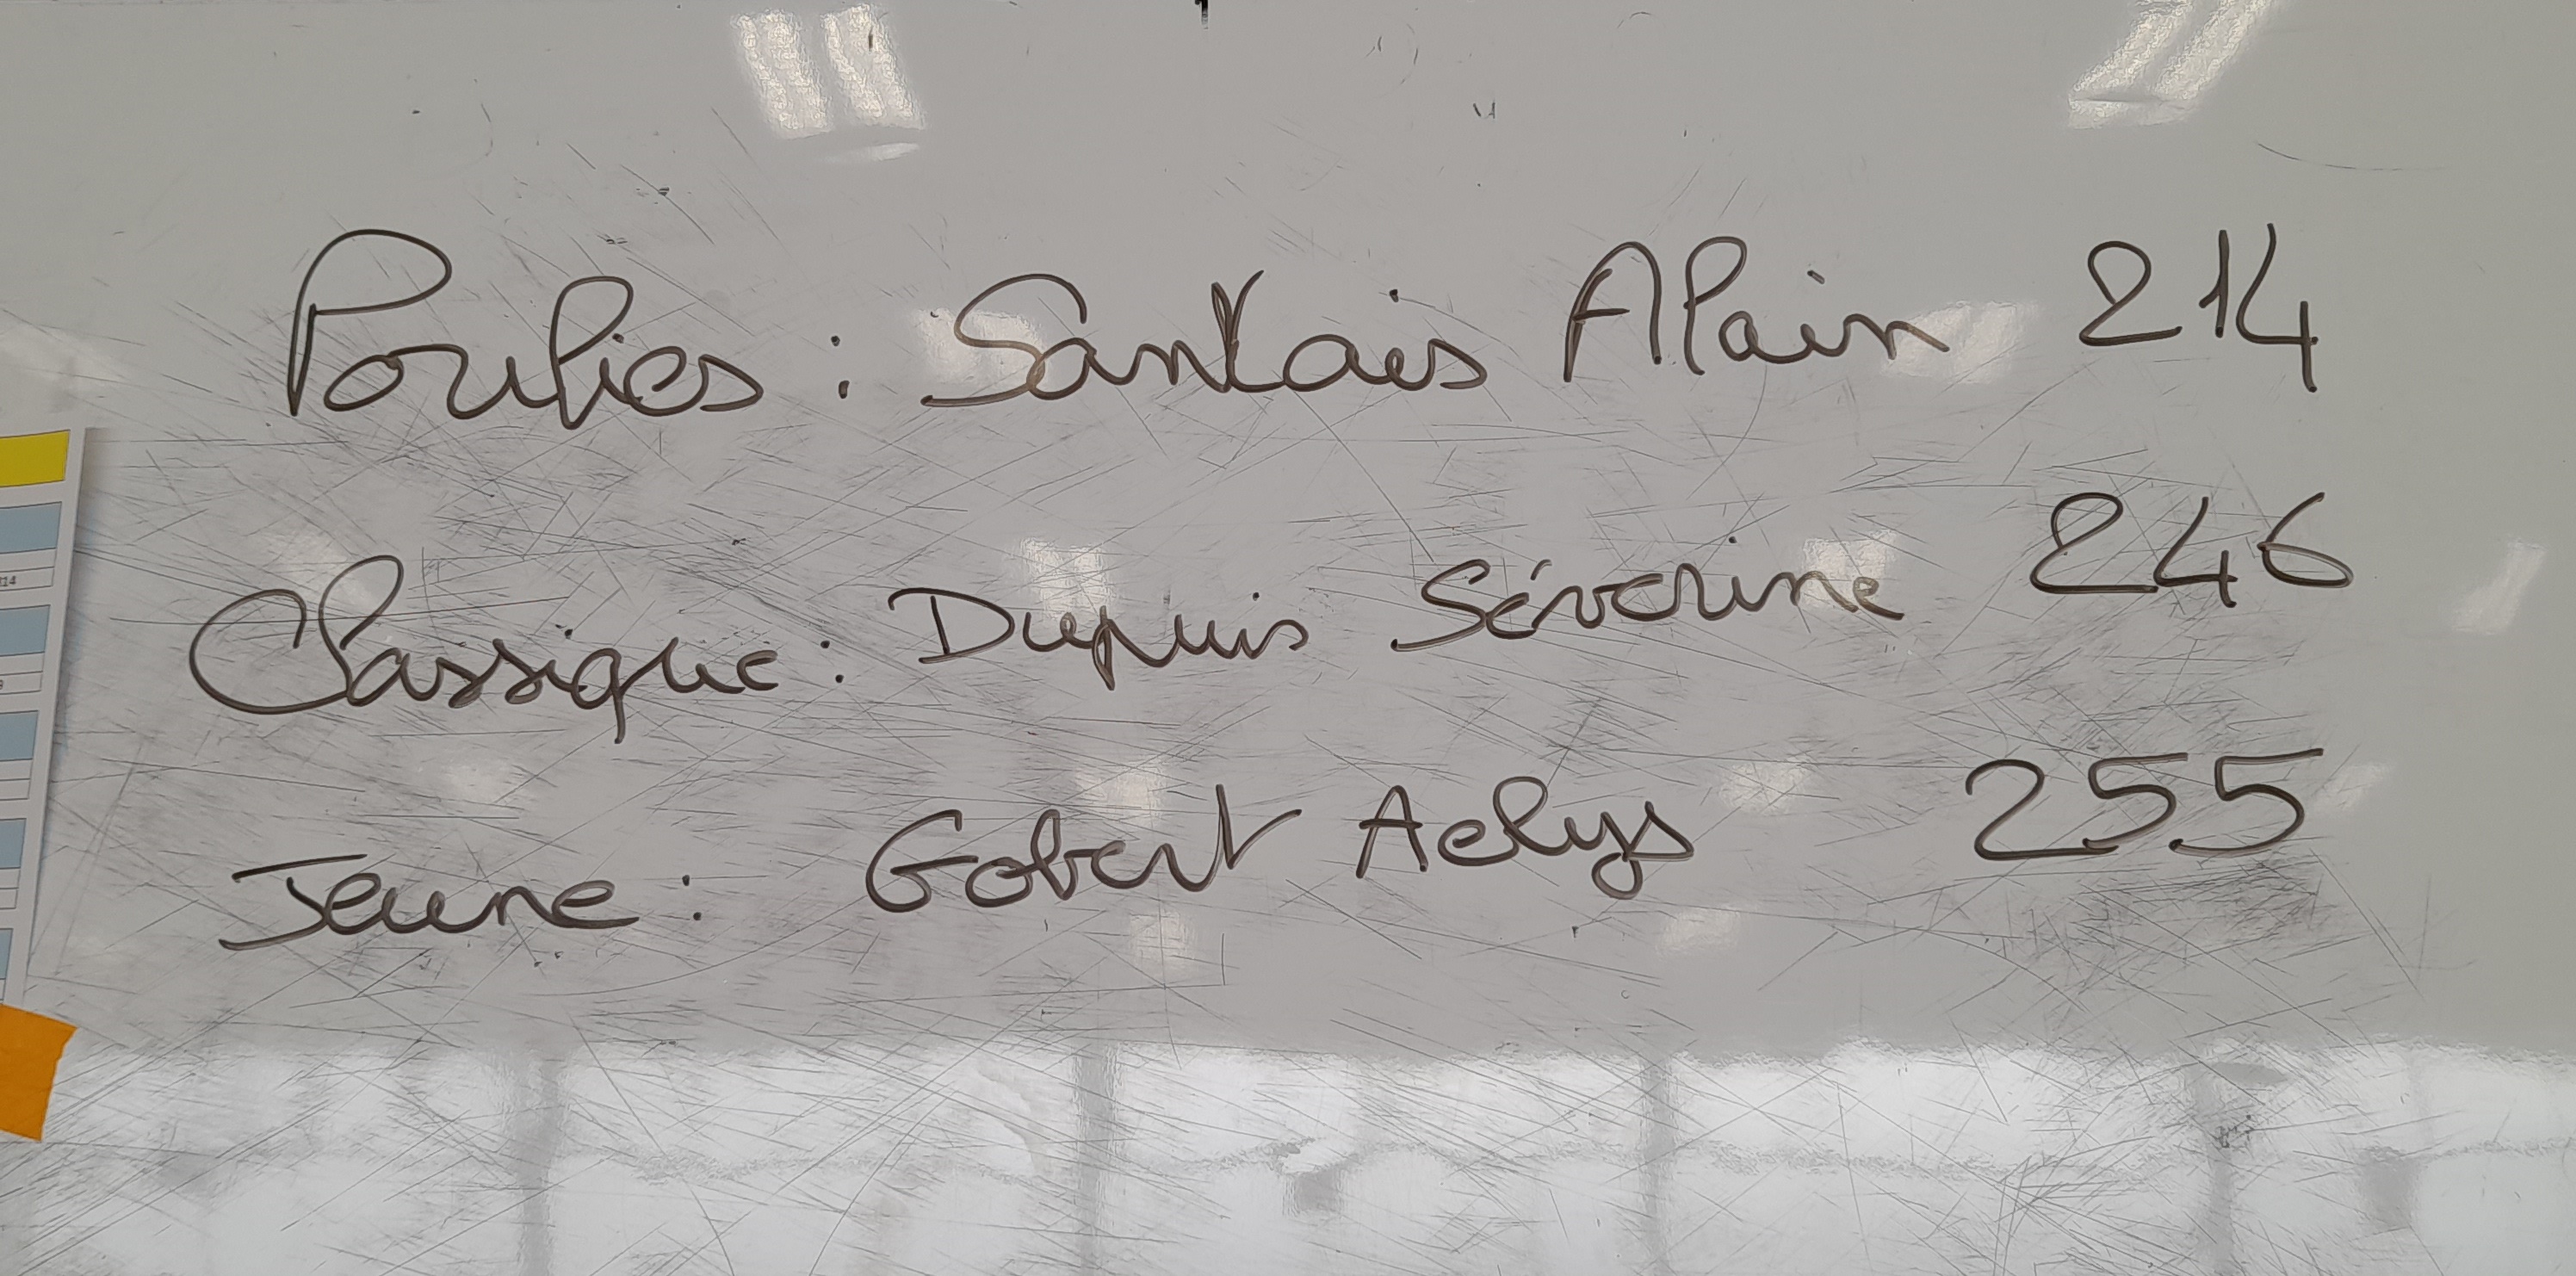 Poulies : Santais Alain 214
Classique : Dupuis Séverine 246
Jeune : Gobert Aelys 255